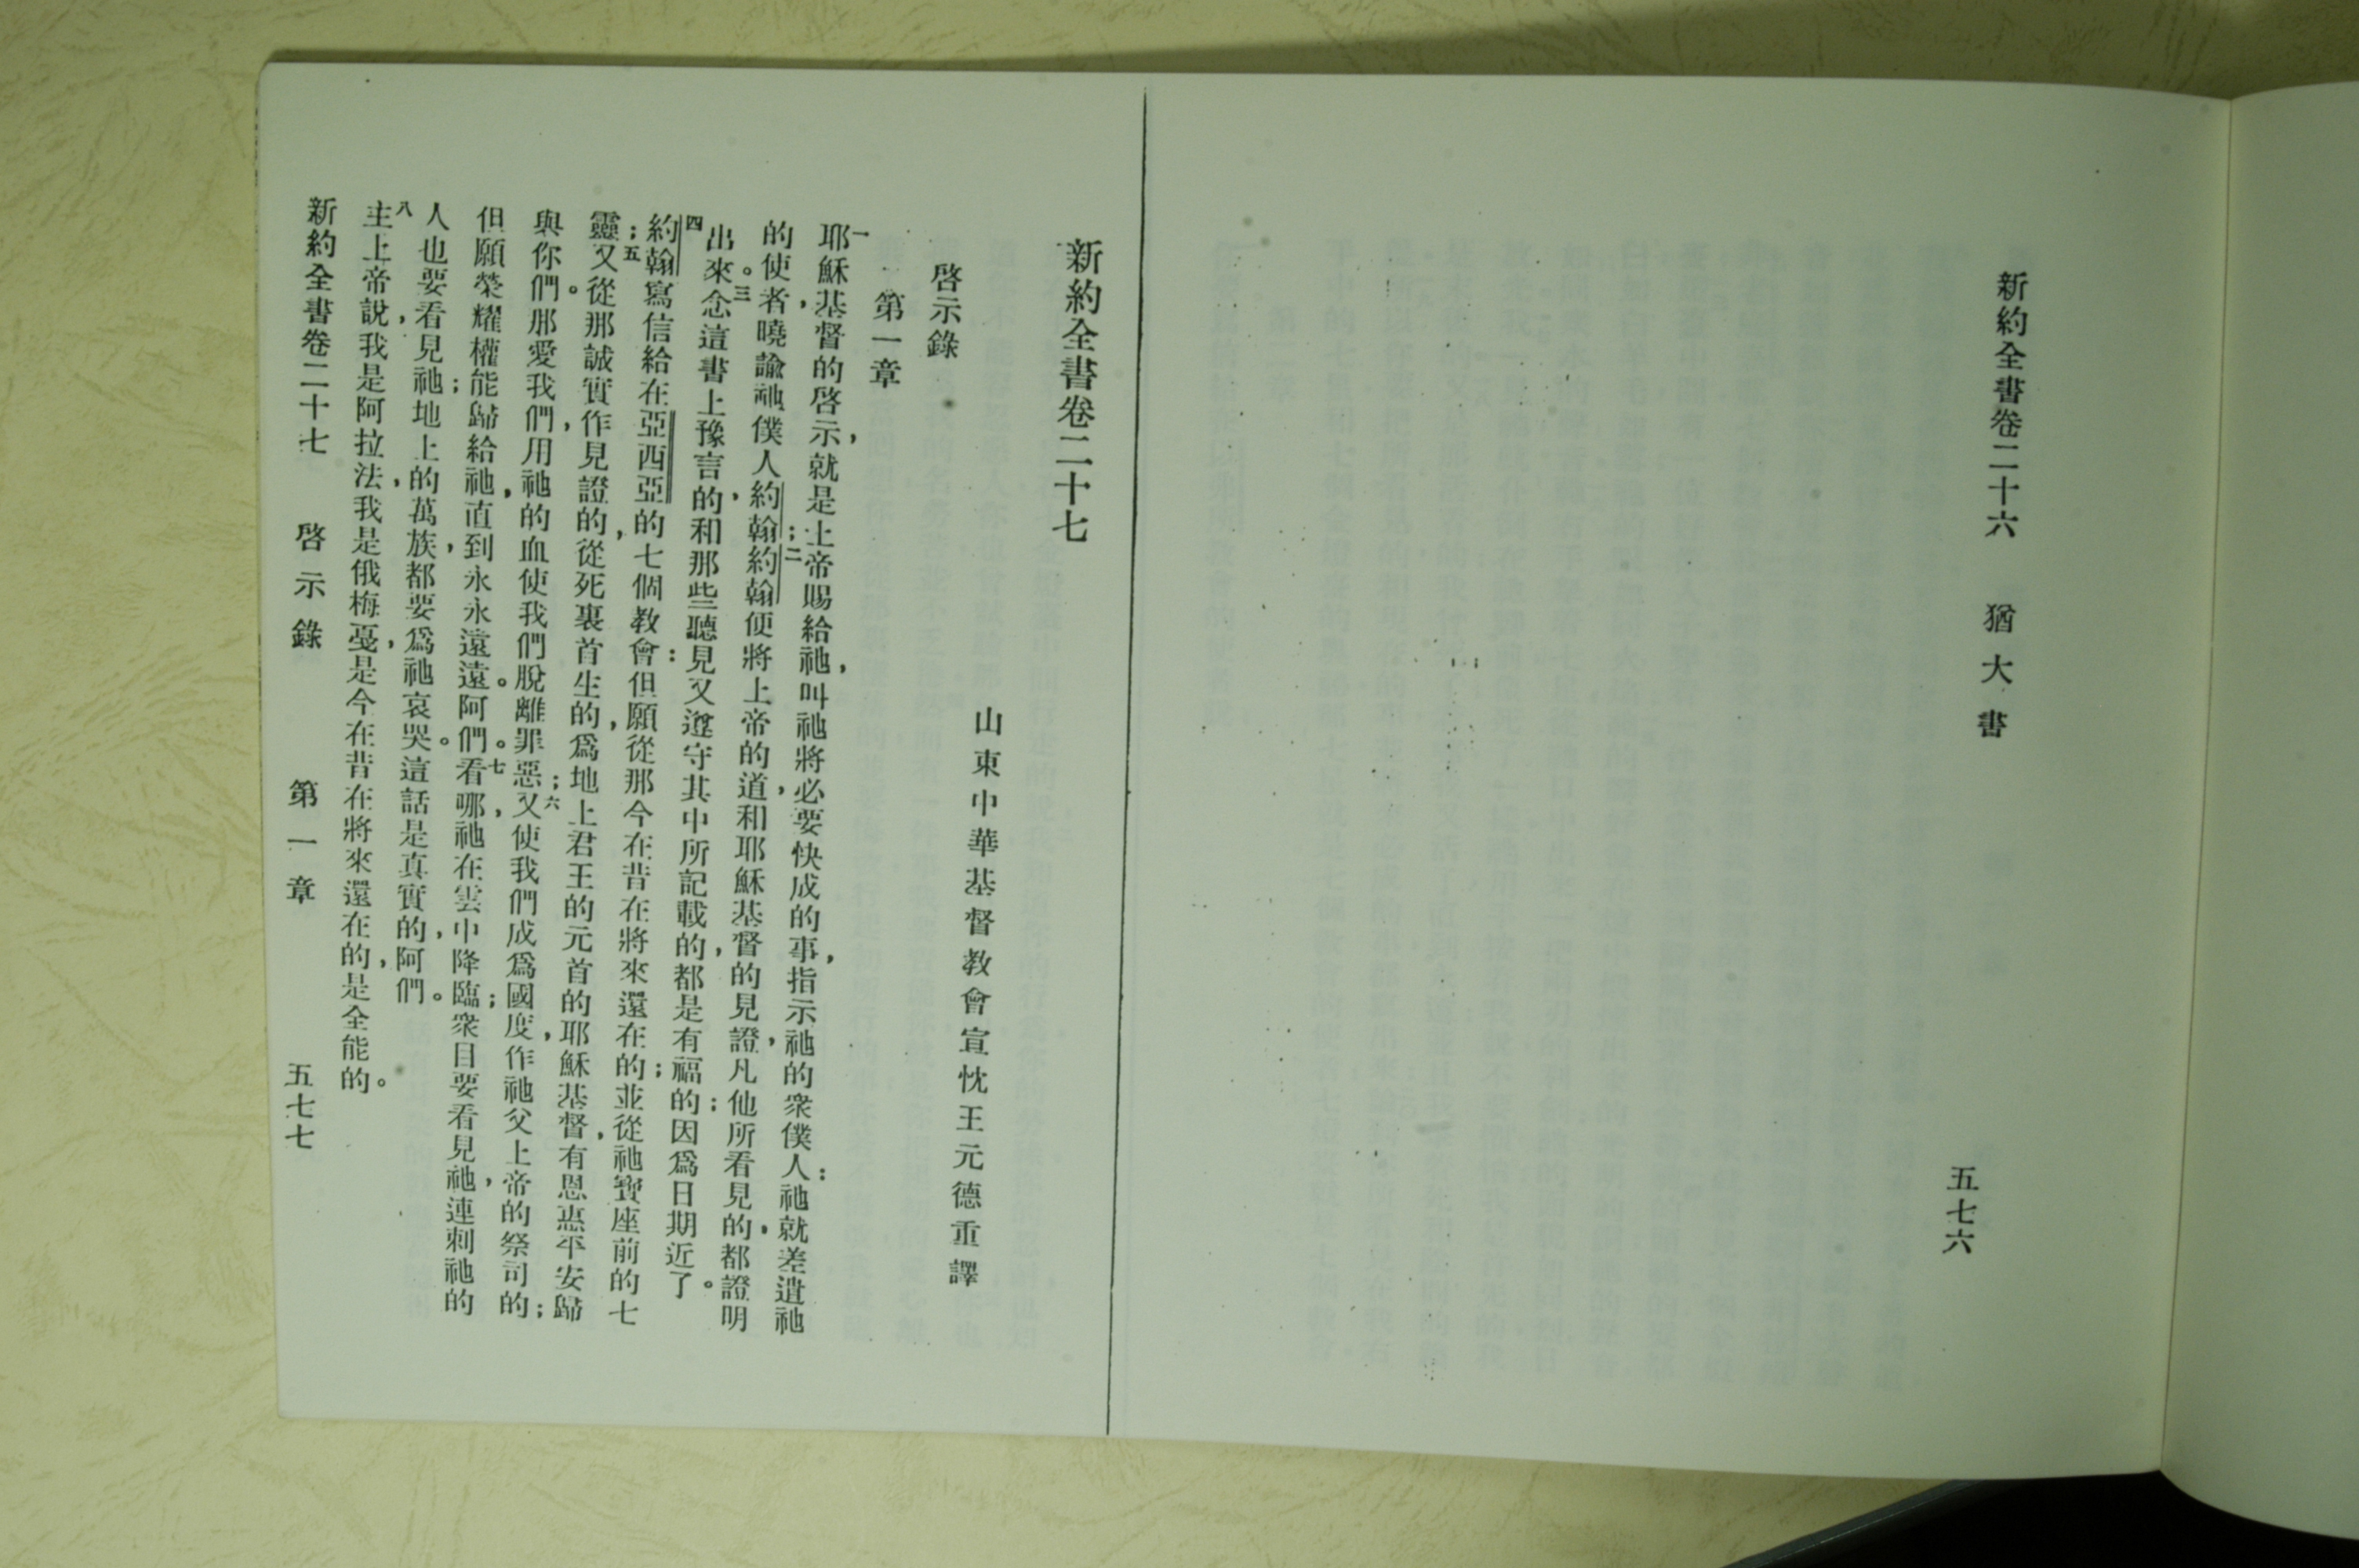 新約全書卷二十六 猶大書 五七六
新約全書卷二十七
山東中華基督教會宣忱王元德重譯
啓示錄
第一章
一耶穌基督的啓示，就是上帝賜給祂，叫祂將必要快成的事，指示祂的衆僕人：祂就差遣祂
的使者，曉諭祂僕人約翰；二約翰便將上帝的道，和耶穌基督的見證，凡他所看見的，都證明
出來。三念這書上豫言的，和那些聽見又遵守其中所記載的，都是有福的；因爲日期近了。
四約翰寫信給在亞西亞的七個教會：但願從那今在昔在將來還在的；並從祂寶座前的七
靈；五又從那誠實作見證的，從死裏首生的，爲地上君王的元首的耶穌基督，有恩惠平安歸
與你們。那愛我們，用祂的血使我們脫離罪惡；六又使我們成爲國度，作祂父上帝的祭司的；
但願榮耀權能歸給祂，直到永永遠遠。阿們。七看哪，祂在雲中降臨；衆目要看見祂，連刺祂的
人也要看見祂；地上的萬族，都要爲祂哀哭。這話是真實的，阿們。
八主上帝說，我是阿拉法，我是俄梅戛，是今在昔在將來還在的，是全能的。
新約全書卷二十七 啓示錄 第一章 五七七